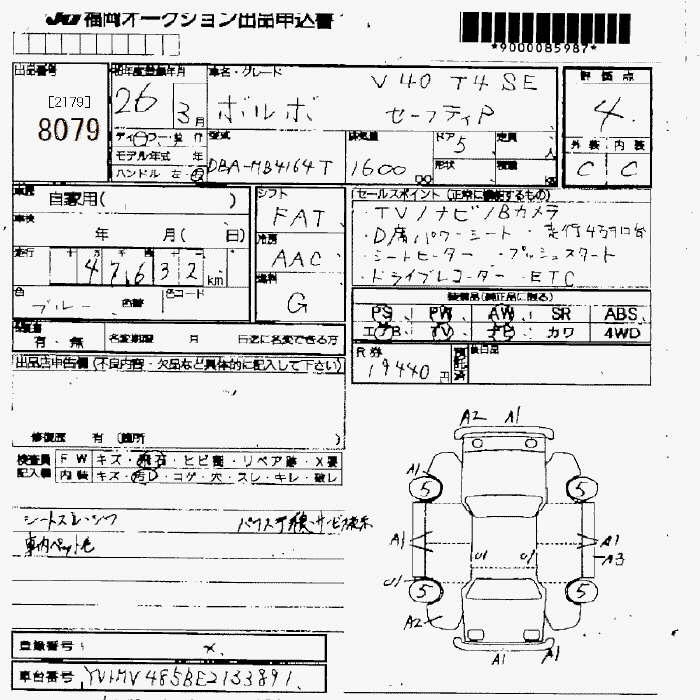 JU 福岡オークション出品申込書
*9000085987*
出品番号
[2179]
8079
初年度登録年月
26 3月
車名・グレード
V40 T4 SE
ボルボ セーフティP
評価点
4
外装 内装
C C
モデル年式 年
ハンドル 左・右
型式
DBA-MB4164T
排気量
1600 cc
ドア 5
定員 人
形状
積載 kg
車歴
自家用( )
車検
年 月( 日)
走行
47,632 km
色
ブルー 色替
色コード
シフト
FAT
冷房
AAC
燃料
G
セールスポイント(正常に機能するもの)
・TV/ナビ/Bカメラ
・D席パワーシート ・走行4万7百台
・シートヒーター ・プッシュスタート
・ドライブレコーダー ・ETC
装備品(純正品に限る)
PS PW AW SR ABS
エアB TV ナビ カワ 4WD
有・無
名変期限 月 日迄に名変できる方
R券
19440円
預託済
後日品
出品店申告欄(不良内容・欠品など具体的に記入して下さい)
修復歴 有 (箇所 )
検査員記入欄
FW キズ・飛石・ヒビ割・リペア跡・X要
内装 キズ・汚レ・コゲ・穴・スレ・キレ・破レ
シートスレ・シワ
車内ペット毛
A2 A1
A1
5 5
A1 A1
A3
U1 U1
U1
5 5
A2
A1 A1
登録番号
車台番号 YV1MV485BE2133891